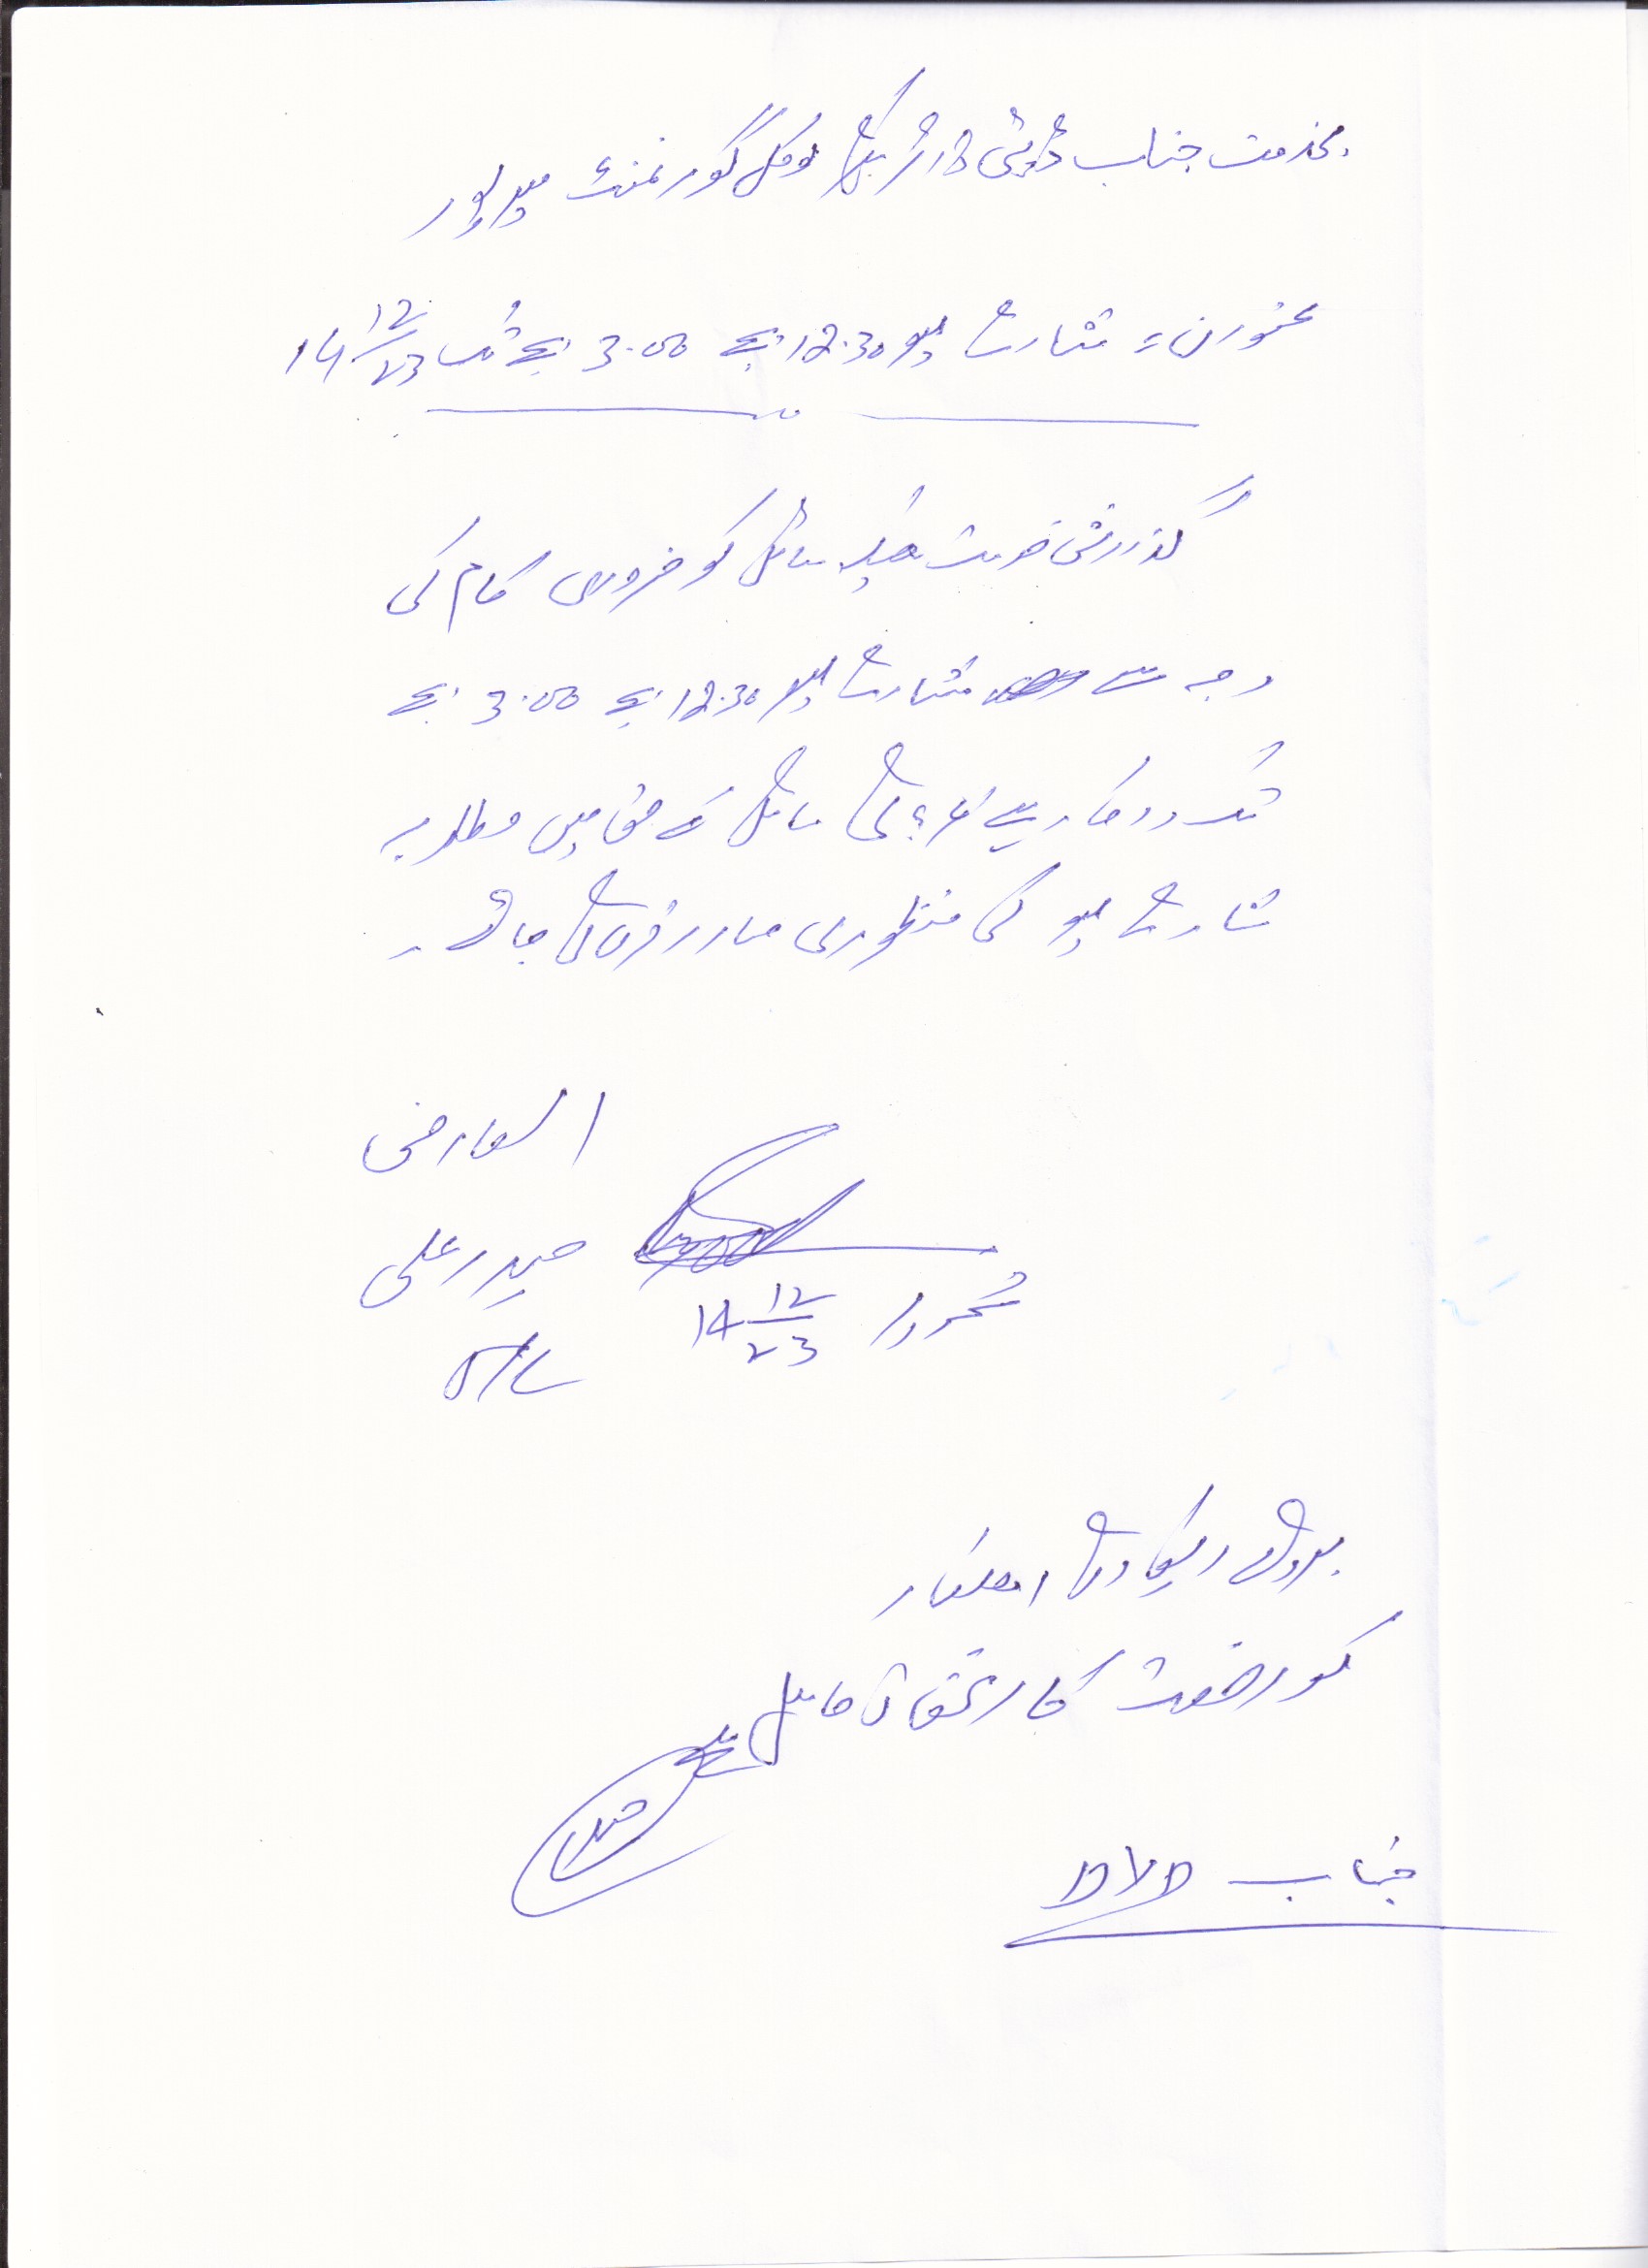 بخدمت جناب ڈپٹی ڈائریکٹر لوکل گورنمنٹ میرپور
عنوان: شارٹ لیو 12:30 بجے 3:00 بجے تک 14 12/23
گذارش خدمت ہیکہ سائل کو ضروری کام کی
وجہ سے شارٹ لیو 12:30 بجے 3:00 بجے
تک درکار ہے لہذا سائل کے حق میں مطلوبہ
شارٹ لیو کی منظوری صادر فرمائی جائے۔
العارض
حیدر علی
J/C
محررہ 14 12/23
بروئے ریکارڈ اہلکار
کو رخصت کا استحقاق حاصل ہے
جناب DD